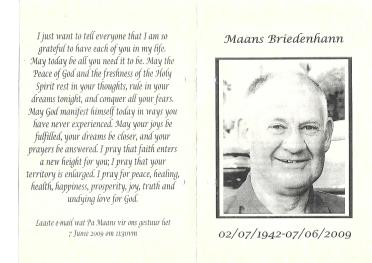 I just want to tell everyone that I am so
grateful to have each of you in my life.
May today be all you need it to be. May the
Peace of God and the freshness of the Holy
Spirit rest in your thoughts, rule in your
dreams tonight, and conquer all your fears.
May God manifest himself today in ways you
have never experienced. May your joys be
fulfilled, your dreams be closer, and your
prayers be answered. I pray that faith enters
a new height for you; I pray that your
territory is enlarged. I pray for peace, healing,
health, happiness, prosperity, joy, truth and
undying love for God.
Laaste e-mail wat Pa Maans vir ons gestuur het
7 June 2009 om 11:30vm
Maans Briedenhann
02/07/1942-07/06/2009